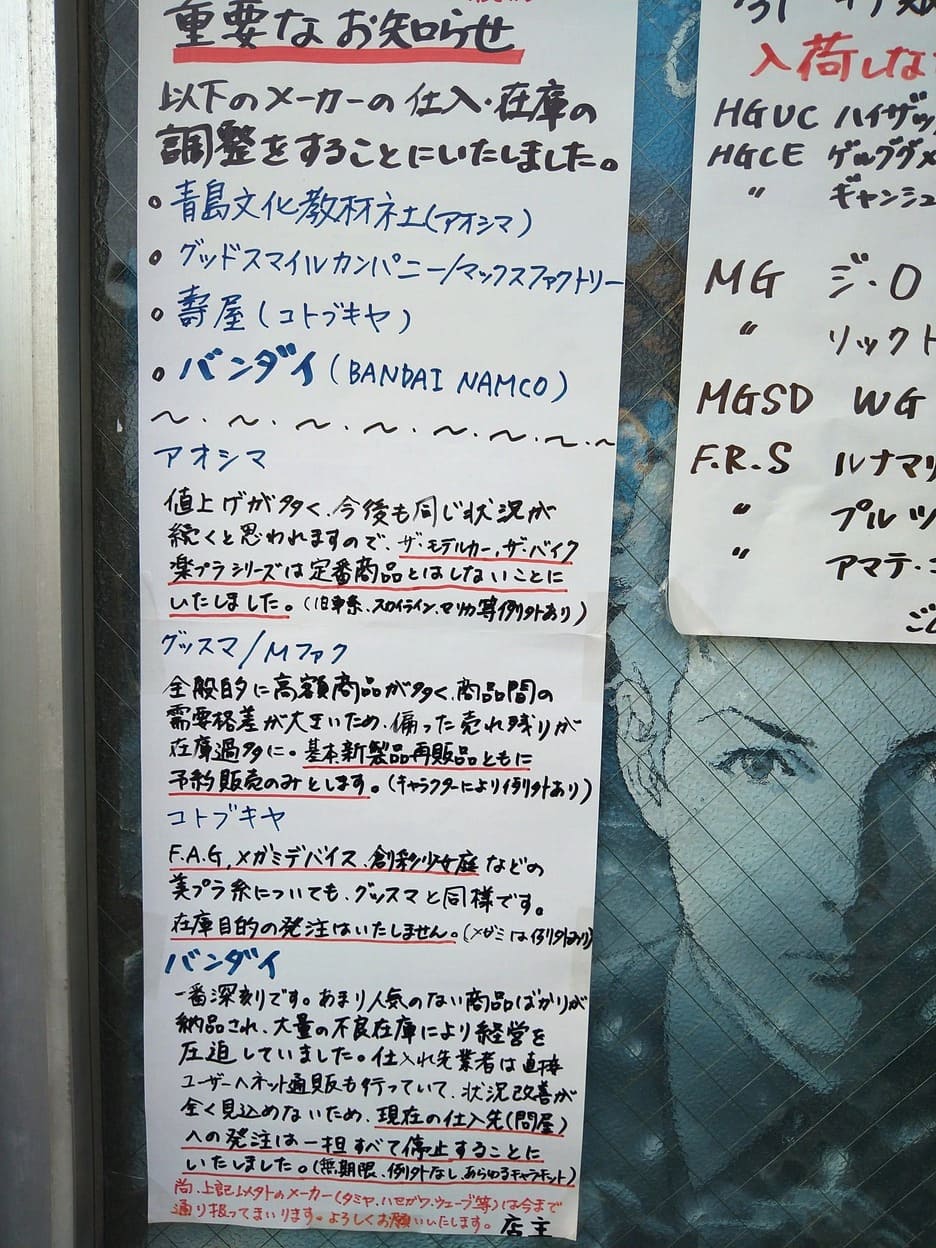 重要なお知らせ
以下のメーカーの仕入・在庫の
調整をすることにいたしました。
• 青島文化教材社(アオシマ)
• グッドスマイルカンパニー/マックスファクトリー
• 壽屋(コトブキヤ)
• バンダイ(BANDAI NAMCO)
〜・〜・〜・〜・〜・〜・〜・〜
アオシマ
値上げが多く、今後も同じ状況が
続くと思われますので、ザ・モデルカー、ザ・バイク
楽プラシリーズは定番商品とはしないことに
いたしました。(旧車系、スカイライン、マリカ等例外あり)
グッスマ/Mファク
全般的に高額商品が多く、商品間の
需要格差が大きいため、偏った売れ残りが
在庫過多に。基本新製品再販品ともに
予約販売のみとします。(キャラクターにより例外あり)
コトブキヤ
F.A.G,メガミデバイス、創彩少女庭園などの
美プラ系についても、グッスマと同様です。
在庫目的の発注はいたしません。(メガミは例外あり)
バンダイ
一番深刻です。あまり人気のない商品ばかりが
納品され、大量の不良在庫により経営を
圧迫していました。仕入れ先業者は直接
ユーザーへネット通販も行っていて、状況改善が
全く見込めないため、現在の仕入先(問屋)
への発注は一担すべて停止することに
いたしました。(無期限、例外なし、あらゆるキャラキット)
尚、上記以外のメーカー(タミヤ、ハセガワ、ウェーブ等)は今まで
通り扱ってまいります。よろしくお願いいたします。 店主
入荷しな
HGUC ハイザッ
HGCE ゲルググメ
〃 ギャンシュ
MG ジ・O
〃 リックド
MGSD WG
F.R.S ルナマリ
〃 プルツ
〃 アマテ・